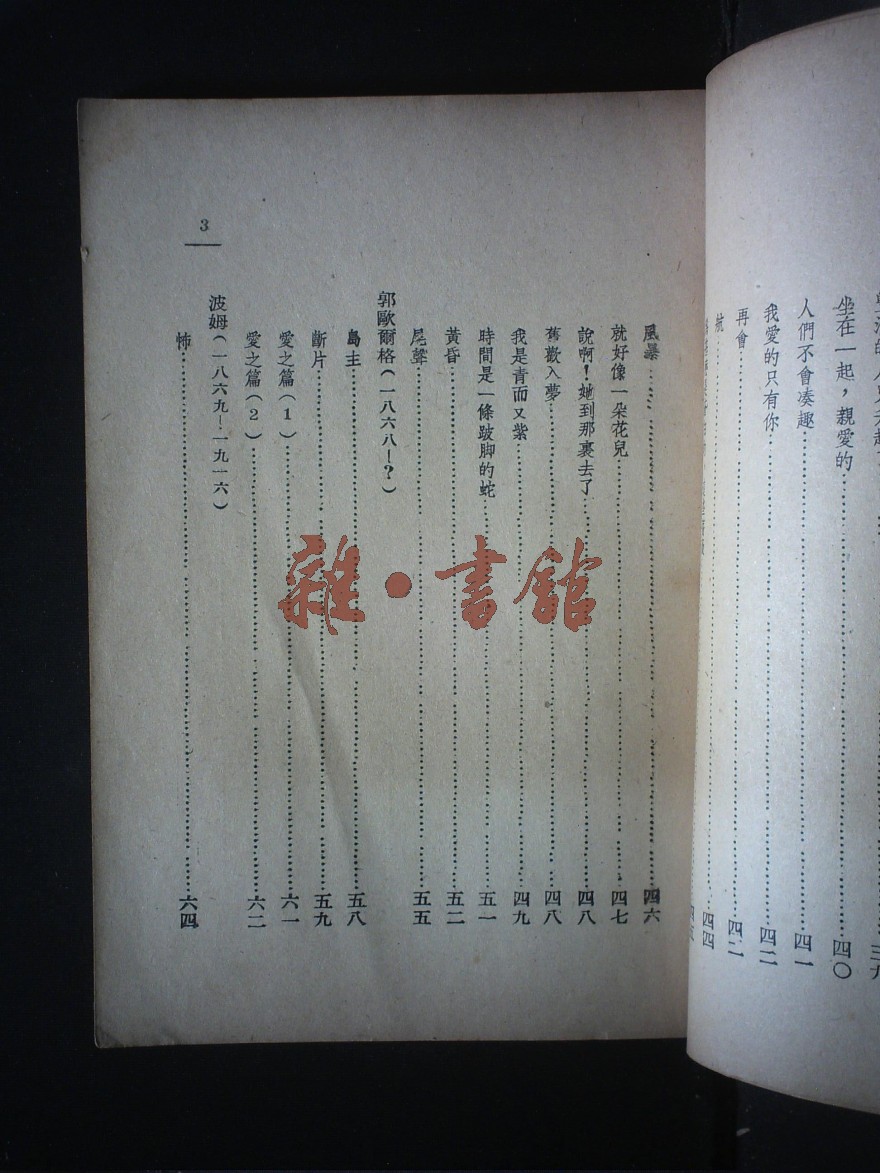 坐在一起，親愛的……四〇
人們不會凑趣……四一
我愛的只有你……四二
再會……四二
航……四四
風暴……四六
就好像一朵花兒……四七
說啊！她到那裏去了……四八
舊歡入夢……四八
我是青而又紫……四九
時間是一條跛脚的蛇……五一
黃昏……五二
尾聲……五五
郭歐爾格（一八六八—？）
島主……五八
斷片……五九
愛之篇（1）……六一
愛之篇（2）……六二
波姆（一八六九—一九一六）
怖……六四
3
雜·書館